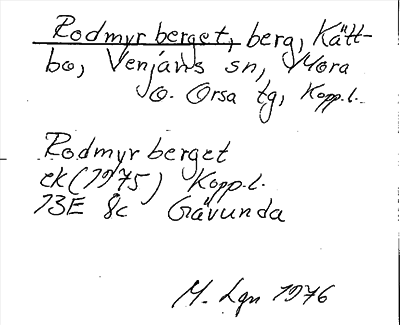 Rodmyrberget, berg, Kätt-
bo, Venjans sn, Mora
o. Orsa tg, Kopp.l.
Rodmyrberget
ek (1975) Kopp.l.
13E 8c Gävunda
M. Lgn 1976